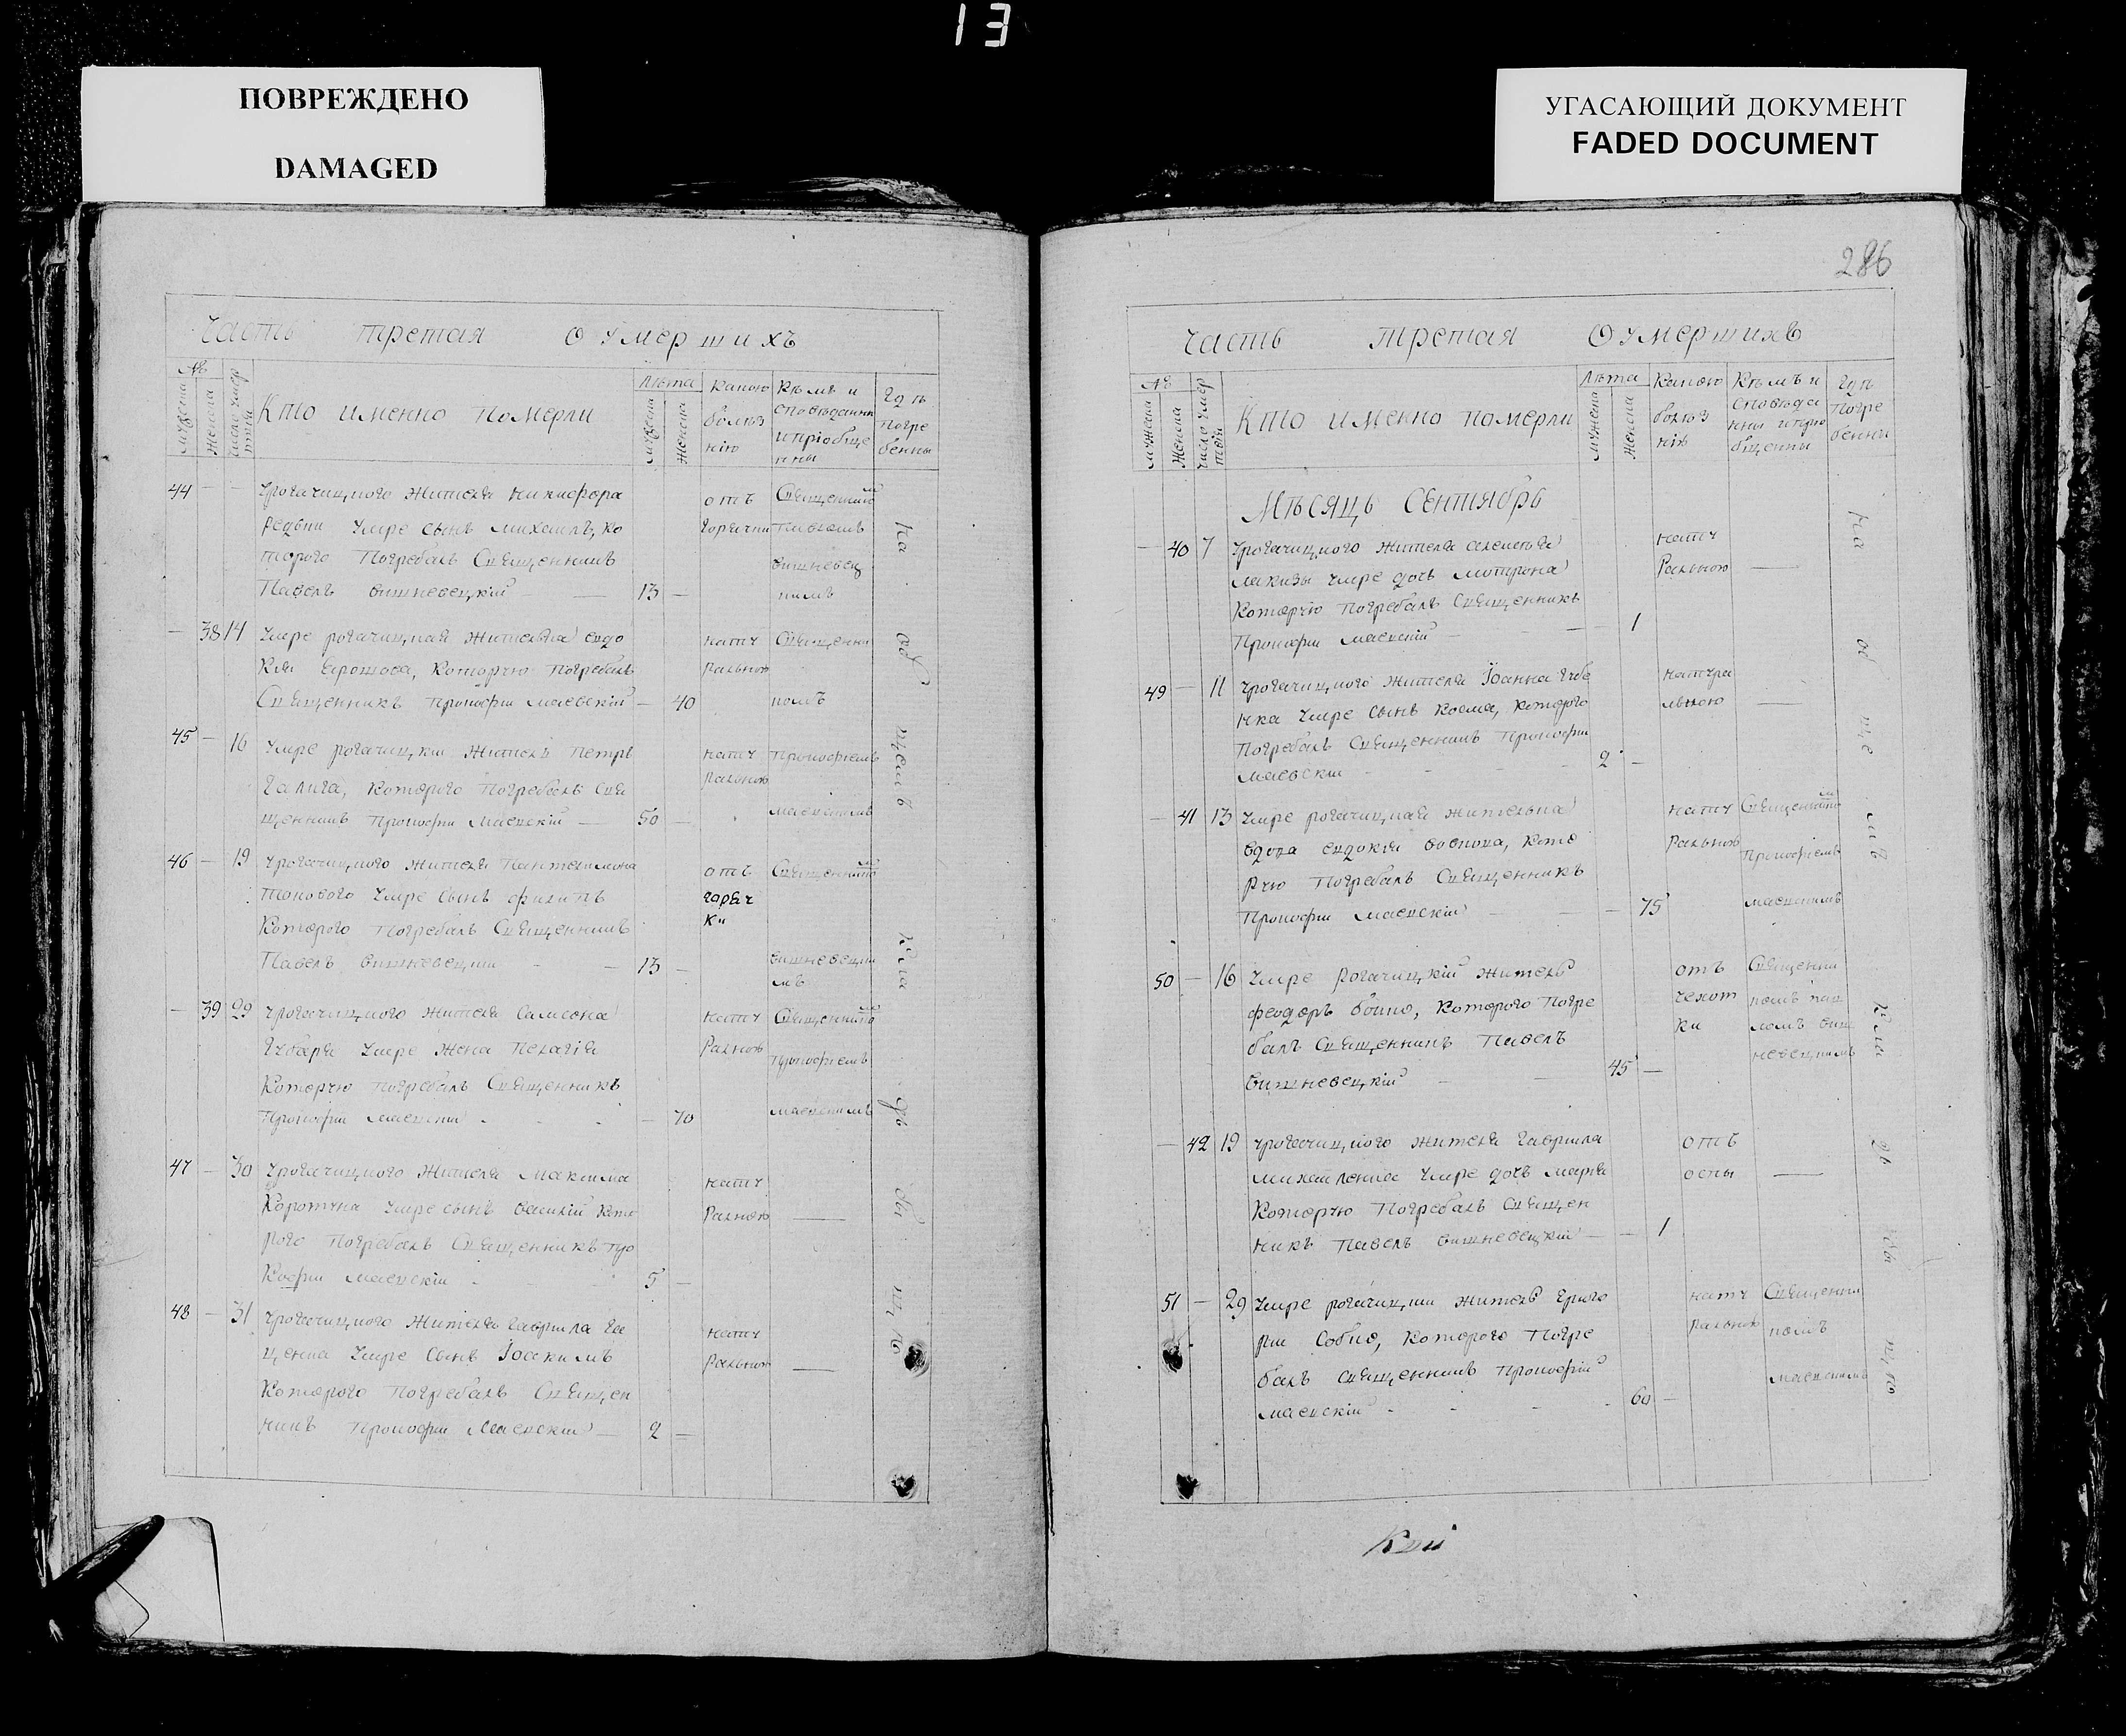 13
ПОВРЕЖДЕНО
DAMAGED
УГАСАЮЩИЙ ДОКУМЕНТ
FADED DOCUMENT
Часть третая О Умершихъ
№
Лѣта
мужеска
женска
число умертвія
Кто именно Померли
мужеска
женска
Какою болѣзнію
Кѣмъ исповѣданны и пріобщенны
Гдѣ погребенны
44 — — Урогачицкого жителя Никифора
умре сынъ Михаилъ, ко
торого Погребалъ Священникъ
Павелъ Вишневецкій — 13 —
отъ горячки
Священникомъ Павломъ Вишневецкимъ
— 38 14 Умре рогачицкая жителка Евдо
кия Ярошова, которую Погребалъ
Священникъ Прокофий Маевскій — 40
натуральною
Священникомъ
45 — 16 Умре рогачицкий житель Петръ
Галига, которого Погребалъ Свя
щенникъ Прокофий Маевскій — 50 —
натуральною
Прокофиемъ Маевскимъ
46 — 19 Урогачицкого жителя Пантелимона
умре сынъ Филипъ
которого Погребалъ Священникъ
Павелъ Вишневецкий — 13 —
отъ горячки
Священникомъ
Вишневецкимъ
— 39 29 Урогачицкого жителя Самсона
умре жена Пелагія
которую Погребалъ Священникъ
Прокофий Маевский — 70
натуральною
Священникомъ Прокофиемъ Маевскимъ
47 — 30 Урогачицкого жителя Максима
Коротуна умре сынъ Василий кото
рого Погребалъ Священникъ Про
кофий Маевскій 5 —
натуральною —
48 — 31 Урогачицкого жителя Гаврила Га
ценка умре сынъ Іоакимъ
которого Погребалъ Священ
никъ Прокофий Маевский — 2 —
натуральною —
На общемъ кладбищѣ
286
Часть третая О Умершихъ
№
Лѣта
мужеска
женска
число умертвія
Кто именно померли
мужеска
женска
Какою болѣзнію
Кѣмъ исповѣданны и приобщенны
Гдѣ погребенны
Мѣсяцъ Сентябрь
— 40 7 Урогачицкого жителя Алексея
Макизы умре дочь Мотрона
которую погребалъ Священникъ
Прокофий Маевский — — 1
натуральною —
49 — 11 Урогачицкого жителя Іоанна Губе
нка умре сынъ Косма, которого
Погребалъ Священникъ Прокофий
Маевский — 2 —
натуральною —
— 41 13 Умре рогачицкая жителка
вдова Евдокия кото
рую погребалъ Священникъ
Прокофий Маевский — — 75
натуральною
Священникомъ Прокофиемъ Маевскимъ
50 — 16 Умре рогачицкій житель
Феодоръ Бойко, которого погре
балъ Священникъ Павелъ
Вишневецкій — 45 —
отъ чехотки
Священникомъ Павломъ Вишневецкимъ
— 42 19 Урогачицкого жителя Гаврила
Михайленка умре дочь Мария
которую погребалъ Священ
никъ Павелъ Вишневецкій — — 1
отъ оспы —
51 — 29 Умре рогачицкий житель Григо
рий Собко, которого погре
балъ Священникъ Прокофий
Маевскій 60 —
натуральною
Священникомъ Маевскимъ
На общемъ кладбищѣ